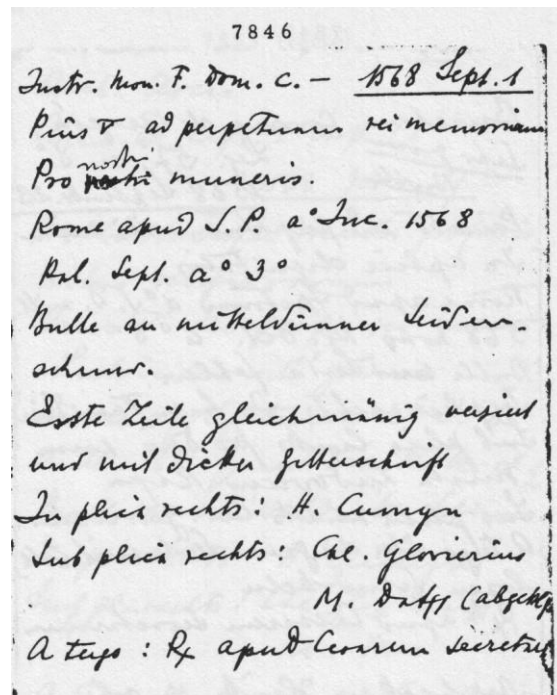 7846
Instr. Mon. F. Dom. C. — 1568 Sept. 1
Pius V ad perpetuam rei memoriam
Pro nostri muneris.
Rome apud S. P. a° Inc. 1568
Kal. Sept. a° 3°
Bulle an mitteldünner Seiden-
schnur.
Erste Zeile gleichmässig verziert
und mit dicker Gitterschrift
In plica rechts: H. Cumyn
Sub plica rechts: Cae. Glorierius
M. Datg (abgek
A tergo: Rx apud Cesarem secretar